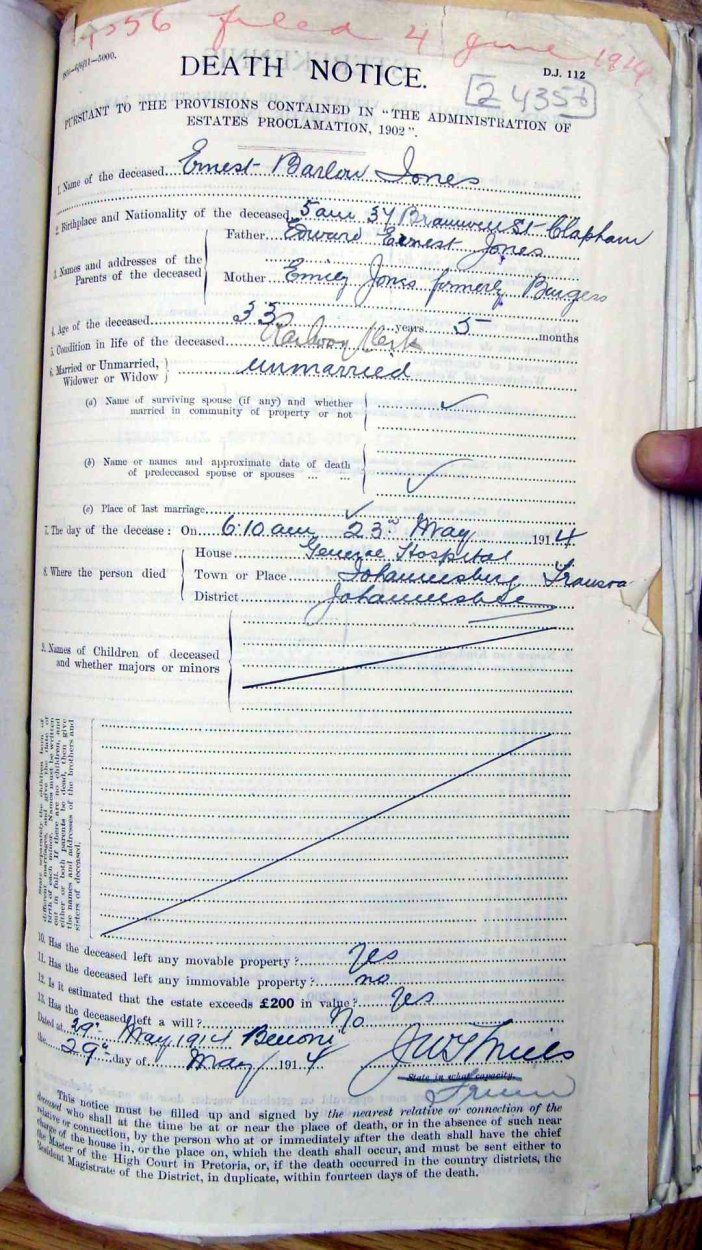 filed 4 June 1914
D.J. 112
24356
DEATH NOTICE.
PURSUANT TO THE PROVISIONS CONTAINED IN "THE ADMINISTRATION OF
ESTATES PROCLAMATION, 1902".
1. Name of the deceased Ernest Barlow Jones
2. Birthplace and Nationality of the deceased 5 am 37 St Clapham
3. Names and addresses of the Parents of the deceased
Father Edward Ernest Jones
Mother Emily Jones formerly Burgess
4. Age of the deceased 33 years 5 months
5. Condition in life of the deceased Railway Clerk
6. Married or Unmarried, Widower or Widow unmarried
(a) Name of surviving spouse (if any) and whether
married in community of property or not ✓
(b) Name or names and approximate date of death
of predeceased spouse or spouses ... ... ✓
(c) Place of last marriage ✓
7. The day of the decease: On 6.10 am 23rd May 1914
8. Where the person died
House General Hospital
Town or Place Johannesburg Transva
District Johannesburg
9. Names of Children of deceased
and whether majors or minors
State separately the children born of
different marriages, and give the date of
birth of each minor. Names must be written
out in full. If there are no children, and
either or both parents be dead, then give
the names and addresses of the brothers and
sisters of deceased.
10. Has the deceased left any movable property? Yes
11. Has the deceased left any immovable property? no
12. Is it estimated that the estate exceeds £200 in value? Yes
13. Has the deceased left a will? No
Dated at 29th May 1914 Benoni
the 29th day of May 1914
State in what capacity.
This notice must be filled up and signed by the nearest relative or connection of the
deceased who shall at the time be at or near the place of death, or in the absence of such near
relative or connection, by the person who at or immediately after the death shall have the chief
charge of the house in, or the place on, which the death shall occur, and must be sent either to
the Master of the High Court in Pretoria, or, if the death occurred in the country districts, the
Resident Magistrate of the District, in duplicate, within fourteen days of the death.